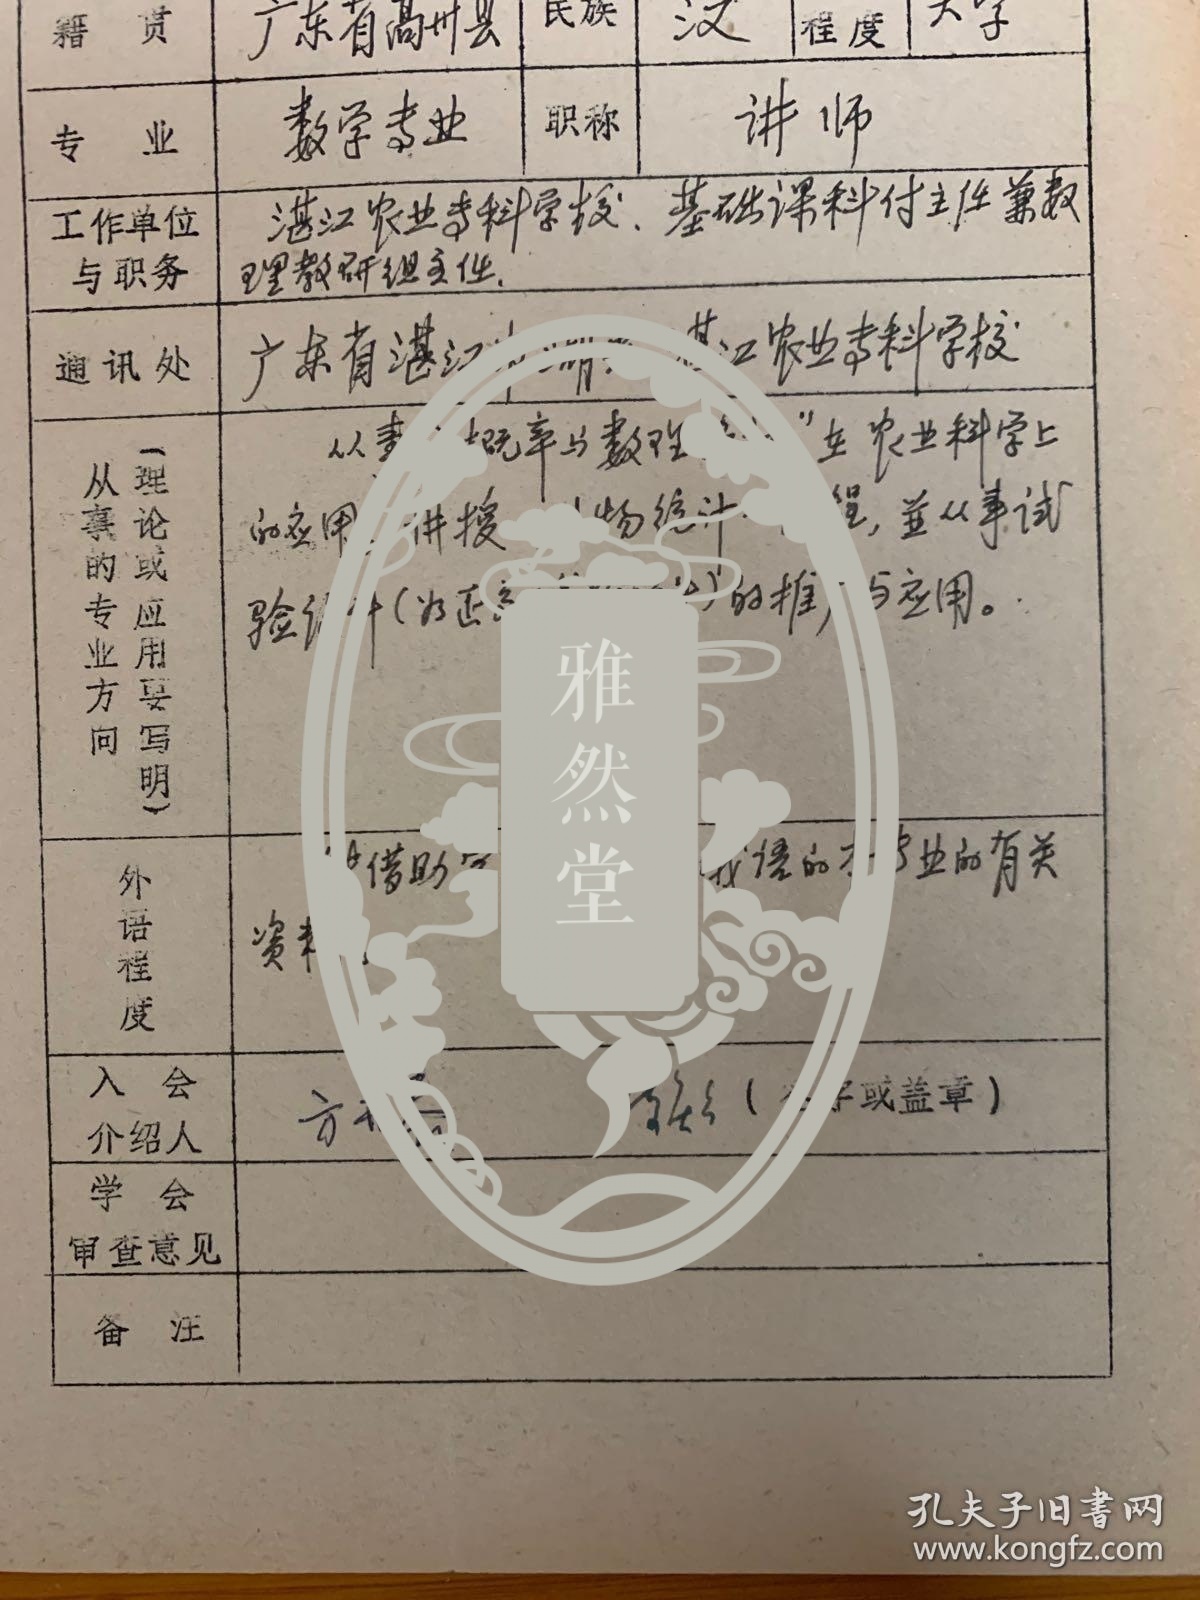 籍贯 广东省高州县 民族 汉 程度 大学
专业 数学专业 职称 讲师
工作单位与职务 湛江农业专科学校、基础课科付主任兼数
理教研组主任.
通讯处 广东省湛江 湛江农业专科学校
从事的专业方向
(理论或应用要写明)
从事 概率与数理 "在农业科学上
的应用 讲授 物统计 程,並从事试
验 的推 与应用。
外语程度
借助 语的 专业的有关
资料
入会介绍人 方 ( 字或盖章)
学会审查意见
备注
雅然堂
孔夫子旧书网
www.kongfz.com